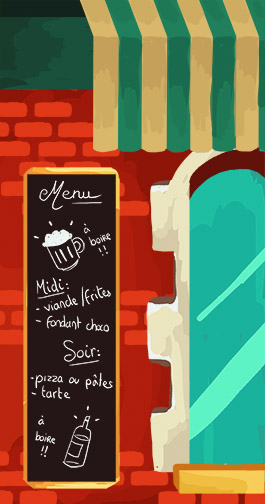 Menu
à
boire
!!
Midi:
- viande/frites
- fondant choco
Soir:
- pizza ou pâtes
- tarte
à
boire
!!